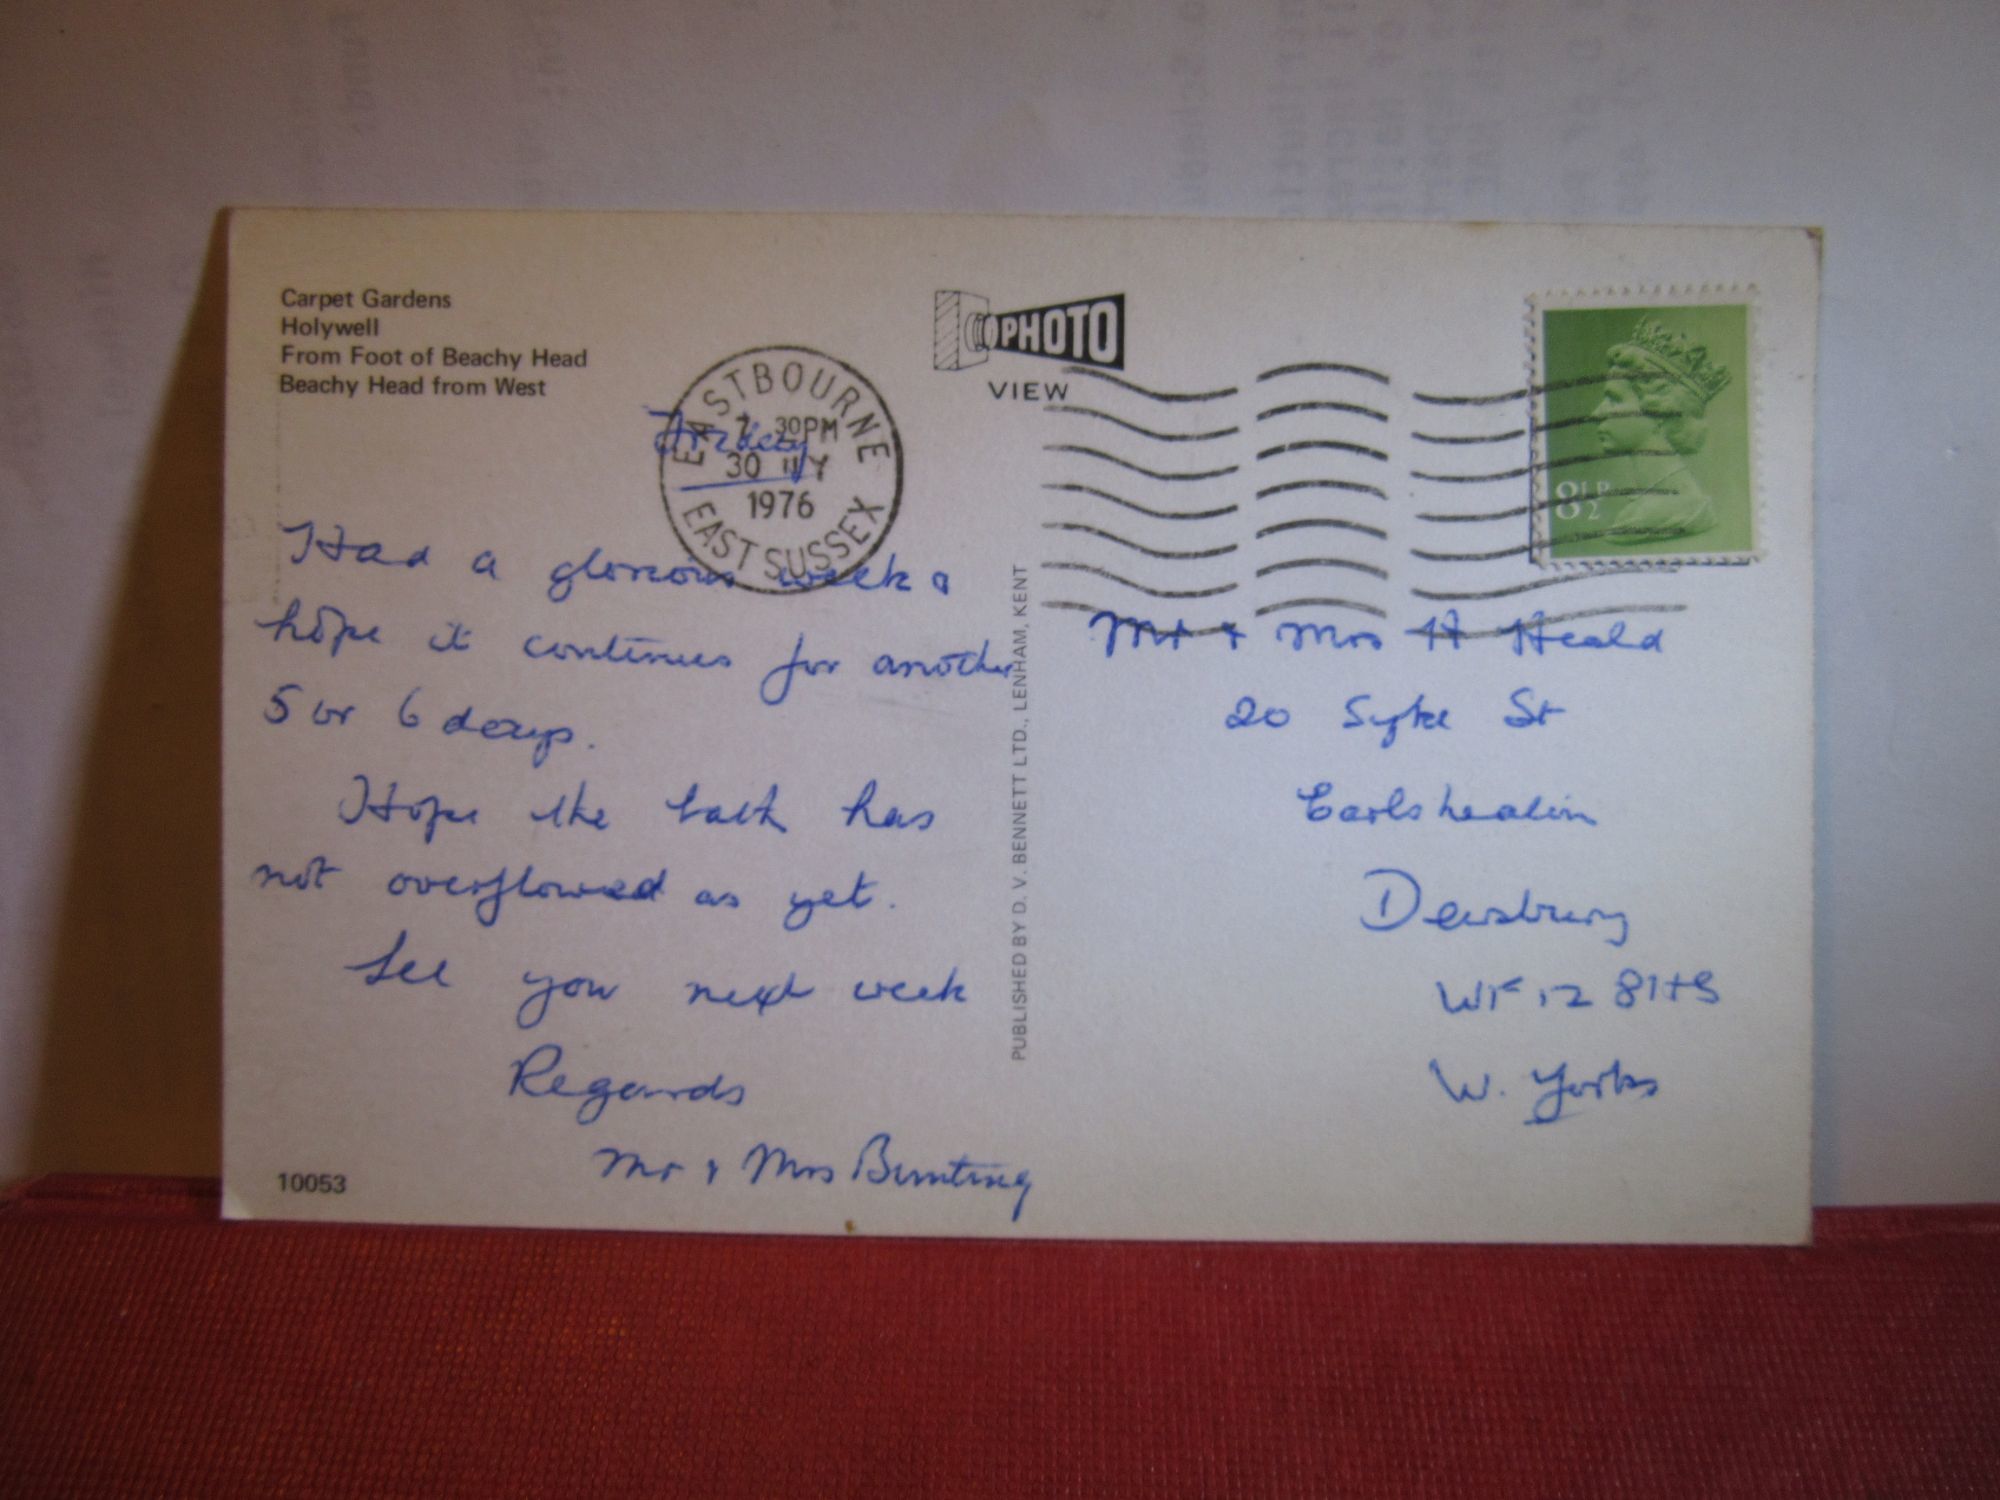 Carpet Gardens
Holywell
From Foot of Beachy Head
Beachy Head from West
PHOTO
VIEW
EASTBOURNE
7. 30PM
30
1976
EAST SUSSEX
8½P
Friday
Had a glorious week &
hope it continues for another
5 or 6 days.
Hope the bath has
not overflowed as yet.
See you next week
Regards
Mr & Mrs Bunting
10053
PUBLISHED BY D. V. BENNETT LTD., LENHAM, KENT
Mr & Mrs H Heald
20 Syke St
Earlsheaton
Dewsbury
WF12 8HS
W. Yorks